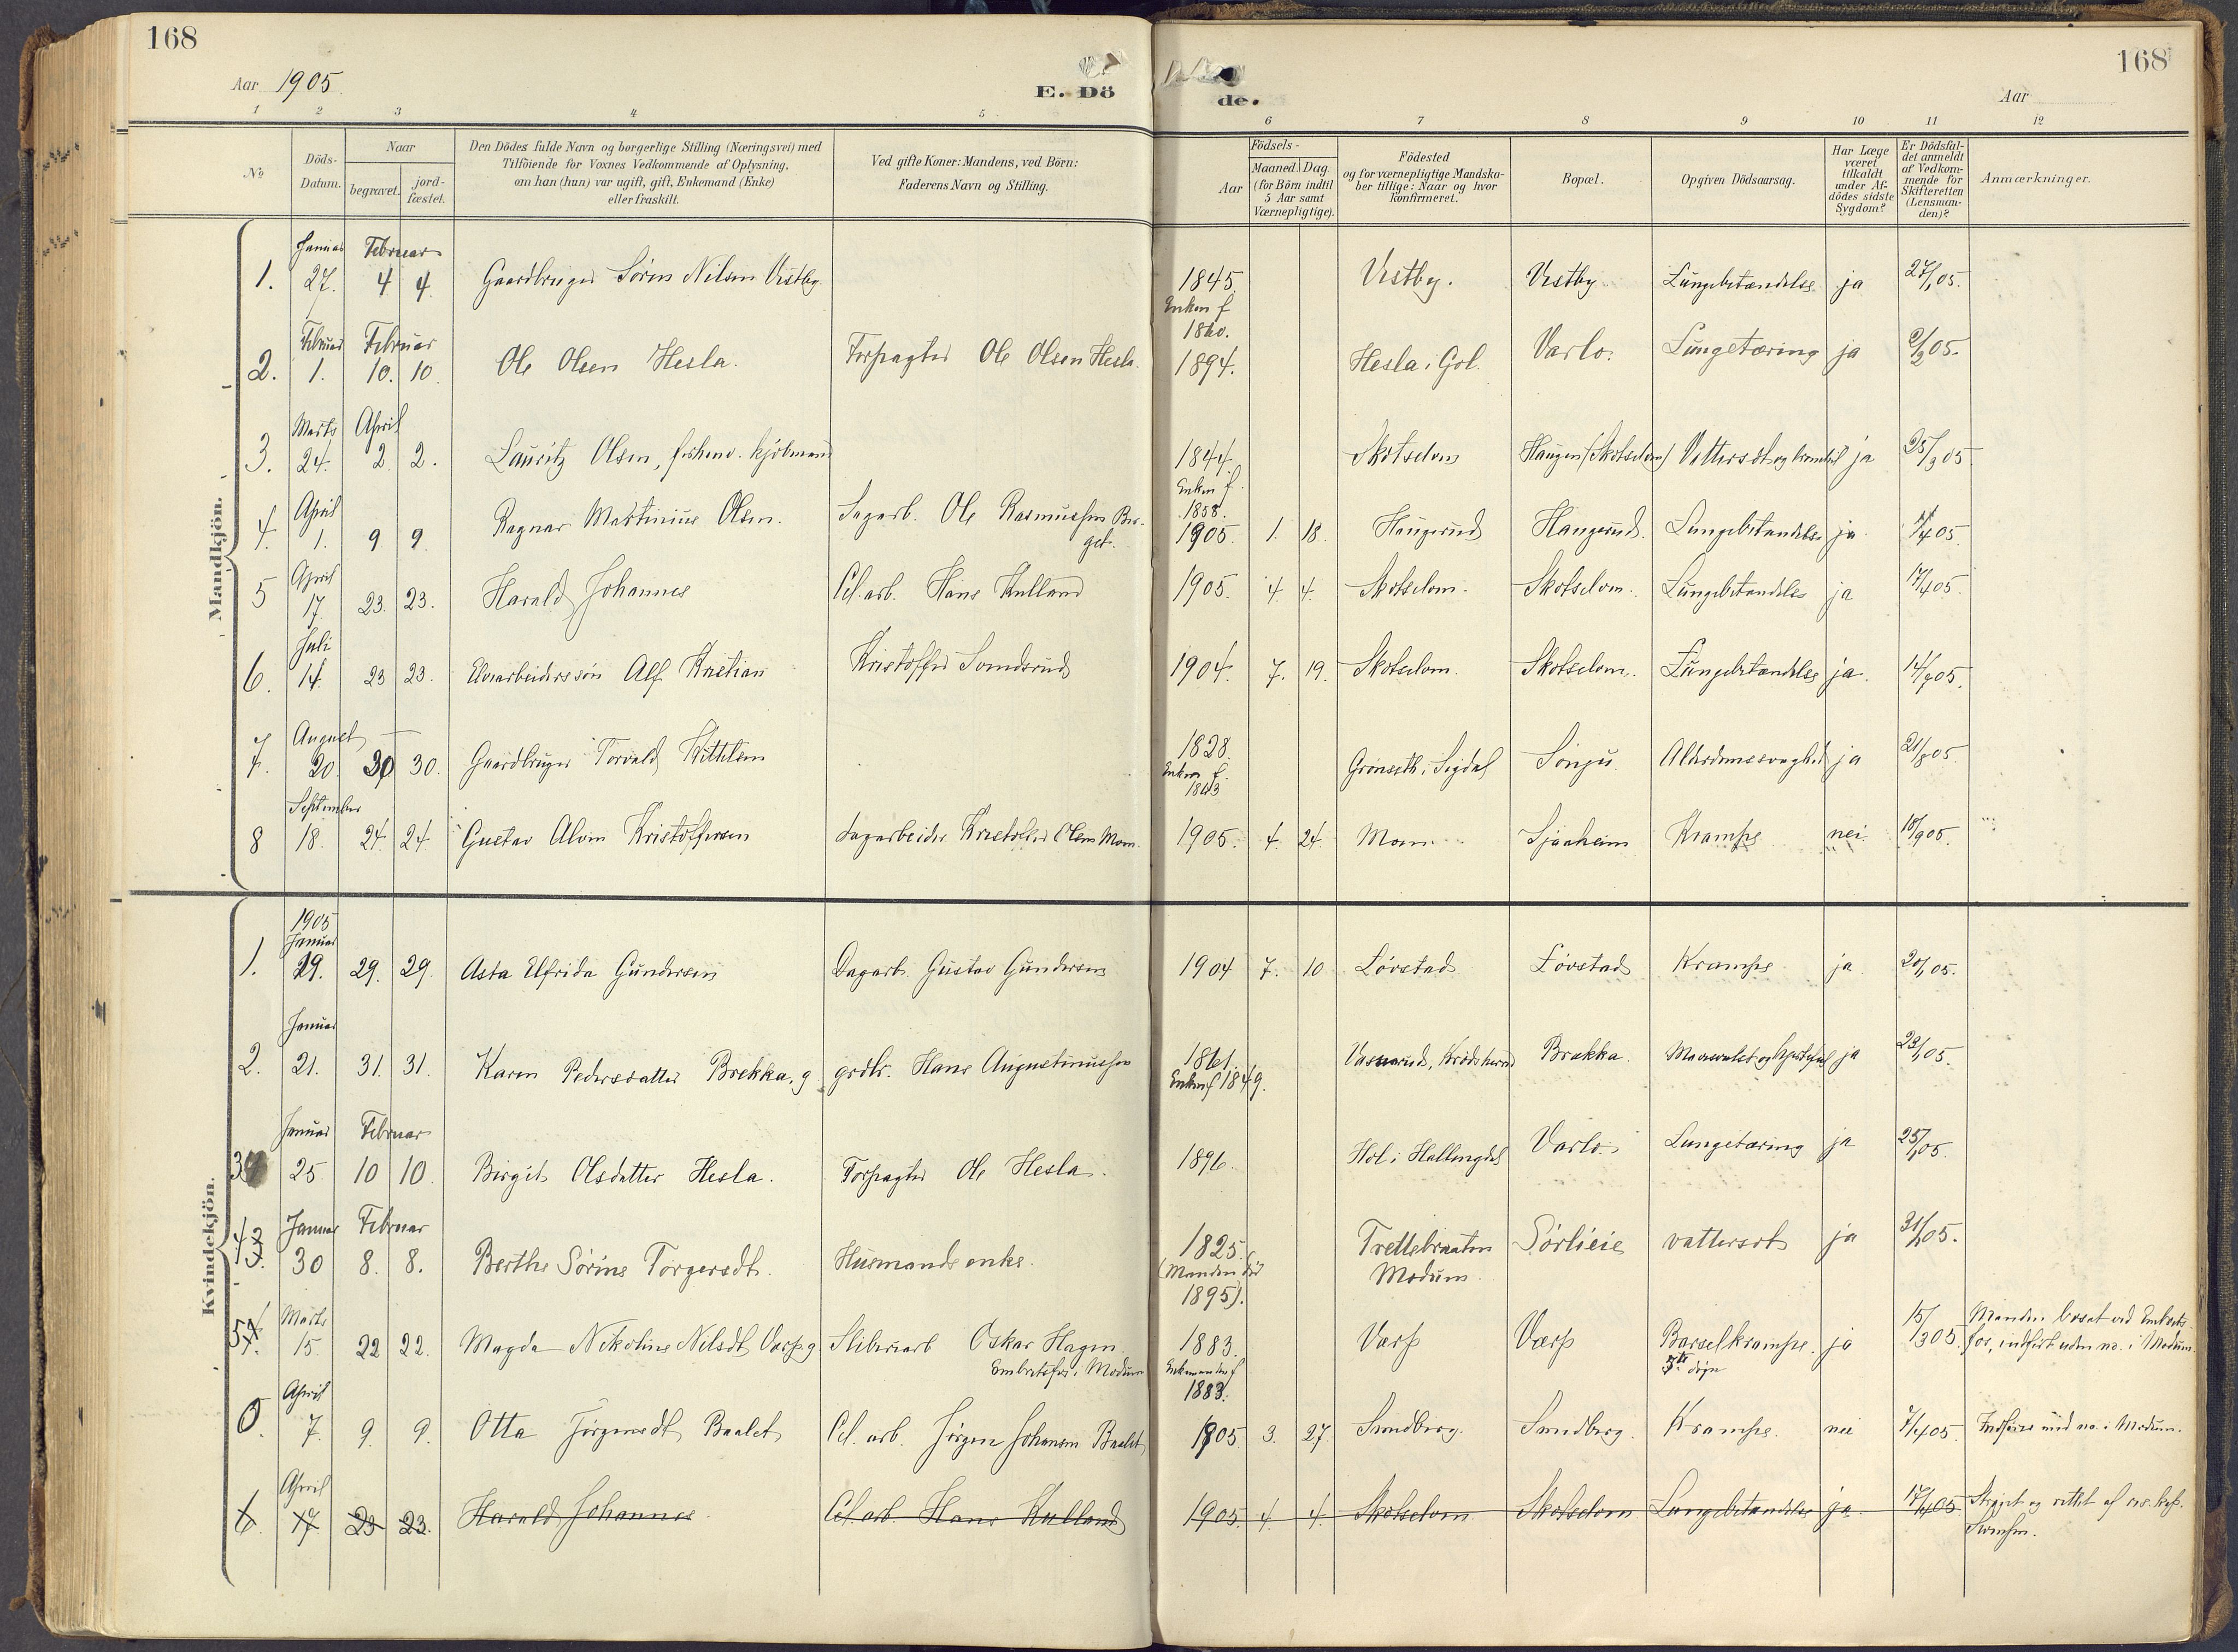 168
168
Aar 1905.
E. Dö
de.
Aar
1 2 3 4 5 6 7 8 9 10 11 12
No
Döds-Datum.
Naar
begravet.
jord-fæstet.
Den Dödes fulde Navn og borgerlige Stilling (Næringsvei) med
Tilföiende for Voxnes Vedkommende af Oplysning,
om han (hun) var ugift, gift, Enkemand (Enke)
eller fraskilt.
Ved gifte Koner: Mandens, ved Börn:
Faderens Navn og Stilling.
Födsels-
Aar
Maaned. Dag.
(for Börn indtil
5 Aar samt
Værnepligtige).
Födested
og for værnepligtige Mandska-
ber tillige: Naar og hvor
Konfirmeret.
Bopæl.
Opgiven Dödsaarsag.
Har Læge
været
tilkaldt
under Af-
dödes sidste
Sygdom?
Er Dödsfal-
det anmeldt
af Vedkom-
mende for
Skifteretten
(Lensman-
den)?
Anmærkninger.
Mandkjön.
Januar Februar
1. 27. 4 4. Gaardbruger Sören Nilsen Vestby. 1845. Vestby. Vestby Lungebetændelse ja 27/1 05.
Enken f
1860.
Februar Februar
2. 1. 10. 10. Ole Olsen Hesla. Forpagter Ole Olsen Hesla. 1894. Hesla i Gol. Varlo. Lungetæring ja 2/2 05.
Marts April
3. 24. 2. 2. Lauritz Olsen, forhenv. kjöbmand 1844. Skotselven Haugen (Skotselven) Vattersot og ja 25/3 05
Enken f.
1858.
April
4. 1. 9 9. Ragnar Martinius Olsen. Sagarb. Ole Rasmussen Ber-
get. 1905. 1. 18. Haugerud Haugerud. Lungebetændelse ja 1/4 05.
April
5 17. 23. 23. Harald Johannes Cel. arb. Hans Kulland 1905. 4. 4. Skotselven. Skotselven. Lungebetændelse ja 17/4 05.
Juli
6. 14. 23 23. Elvearbeiderssön Alf Kristian Kristoffer Sandsrud 1904. 7. 19. Skotselven. Skotselven. Lungebetændelse ja. 14/7 05.
August
7. 20. 30 30. Gaardbruger Torvald Kittilsen 1828. Grönseth i Sigdal Sönju Alderdomssvaghed ja 21/8 05.
Enken f.
1843
September
8 18. 24. 24. Gustav Alvin Kristoffersen Sagarbeider Kristoffer Olsen Moen. 1905. 4. 24. Moen Sjaaheim Krampe nei 18/9 05.
Kvindekjön.
1905
Januar
1. 19. 29. 29. Asta Elfrida Gundersen Dagarb. Gustav Gundersen 1904 7. 10 Lövstad Lövstad Krampe ja 20/1 05.
Januar
2. 21. 31. 31. Karen Pedersdatter Brekka, g grdbr. Hans Augustinussen 1861. Brekka. ja 23/1 05.
Enkem f 1849.
Januar Februar
3 25 10 10. Birgit Olsdatter Hesla. Forpagter Ole Hesla. 1896. Hol i Hallingdal Varlo. Lungetæring ja 25/1 05.
Januar Februar
4 30 8. 8. Berthe Sörine Torgersdt. Husmands enke. 1825. Trettebraaten
Modum. Sörlieie vattersot ja 31/1 05.
(Manden död
1895).
Marts
5 15. 22 22. Magda Nikoline Nilsdt Varp g Sliberiarb Oskar Hagen
Embretsfos i Modum 1883. Varp Varp Barselkrampe.
3die dögn ja 15/3 05 Manden bosat ved Embrets-
fos, indfört uden no. i Modum.
Enkemanden f
1883.
April
0. 7. 9. 9. Otta Jörgensdt Baalet Cel. arb. Jörgen Johansen Baalet 1905 3. 27 Sundberg. Sundberg. Krampe. nei 7/4 05 Indföres med no. i Modum.
April
6. 17 23 23. Harald Johannes Cel. arb. Hans Kulland 1905. 4. 4. Skotselven Skotselven Lungebetændelse ja 17/4 05 Ströget og rettet af res. kap.